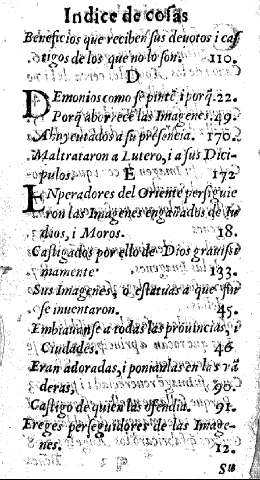 Indice de cosas
Beneficios que reciben sus devotos i cas
tigos de los que no lo son. 110.
D
DEmonios como se pintē, i porq̃. 22.
Porq̃ aborrece las Imagenes. 49.
Ahuyentados a su presencia. 170.
Maltrataron a Lutero, i a sus Dici-
pulos. 172
E
ENperadores del Oriente persiguie
ron las Imagenes engañados de Iu
dios, i Moros. 18.
Castigados por ello de Dios gravissi
mamente. 133.
Sus Imagenes, o estatuas a que fin
se inventaron. 45.
Embiavanse a todas las provincias, i
Ciudades. 46
Eran adoradas, i ponianlas en las vā
deras. 90.
Castigo de quien las ofendia. 91.
Ereges perseguidores de las Image-
nes. 12.
Sus